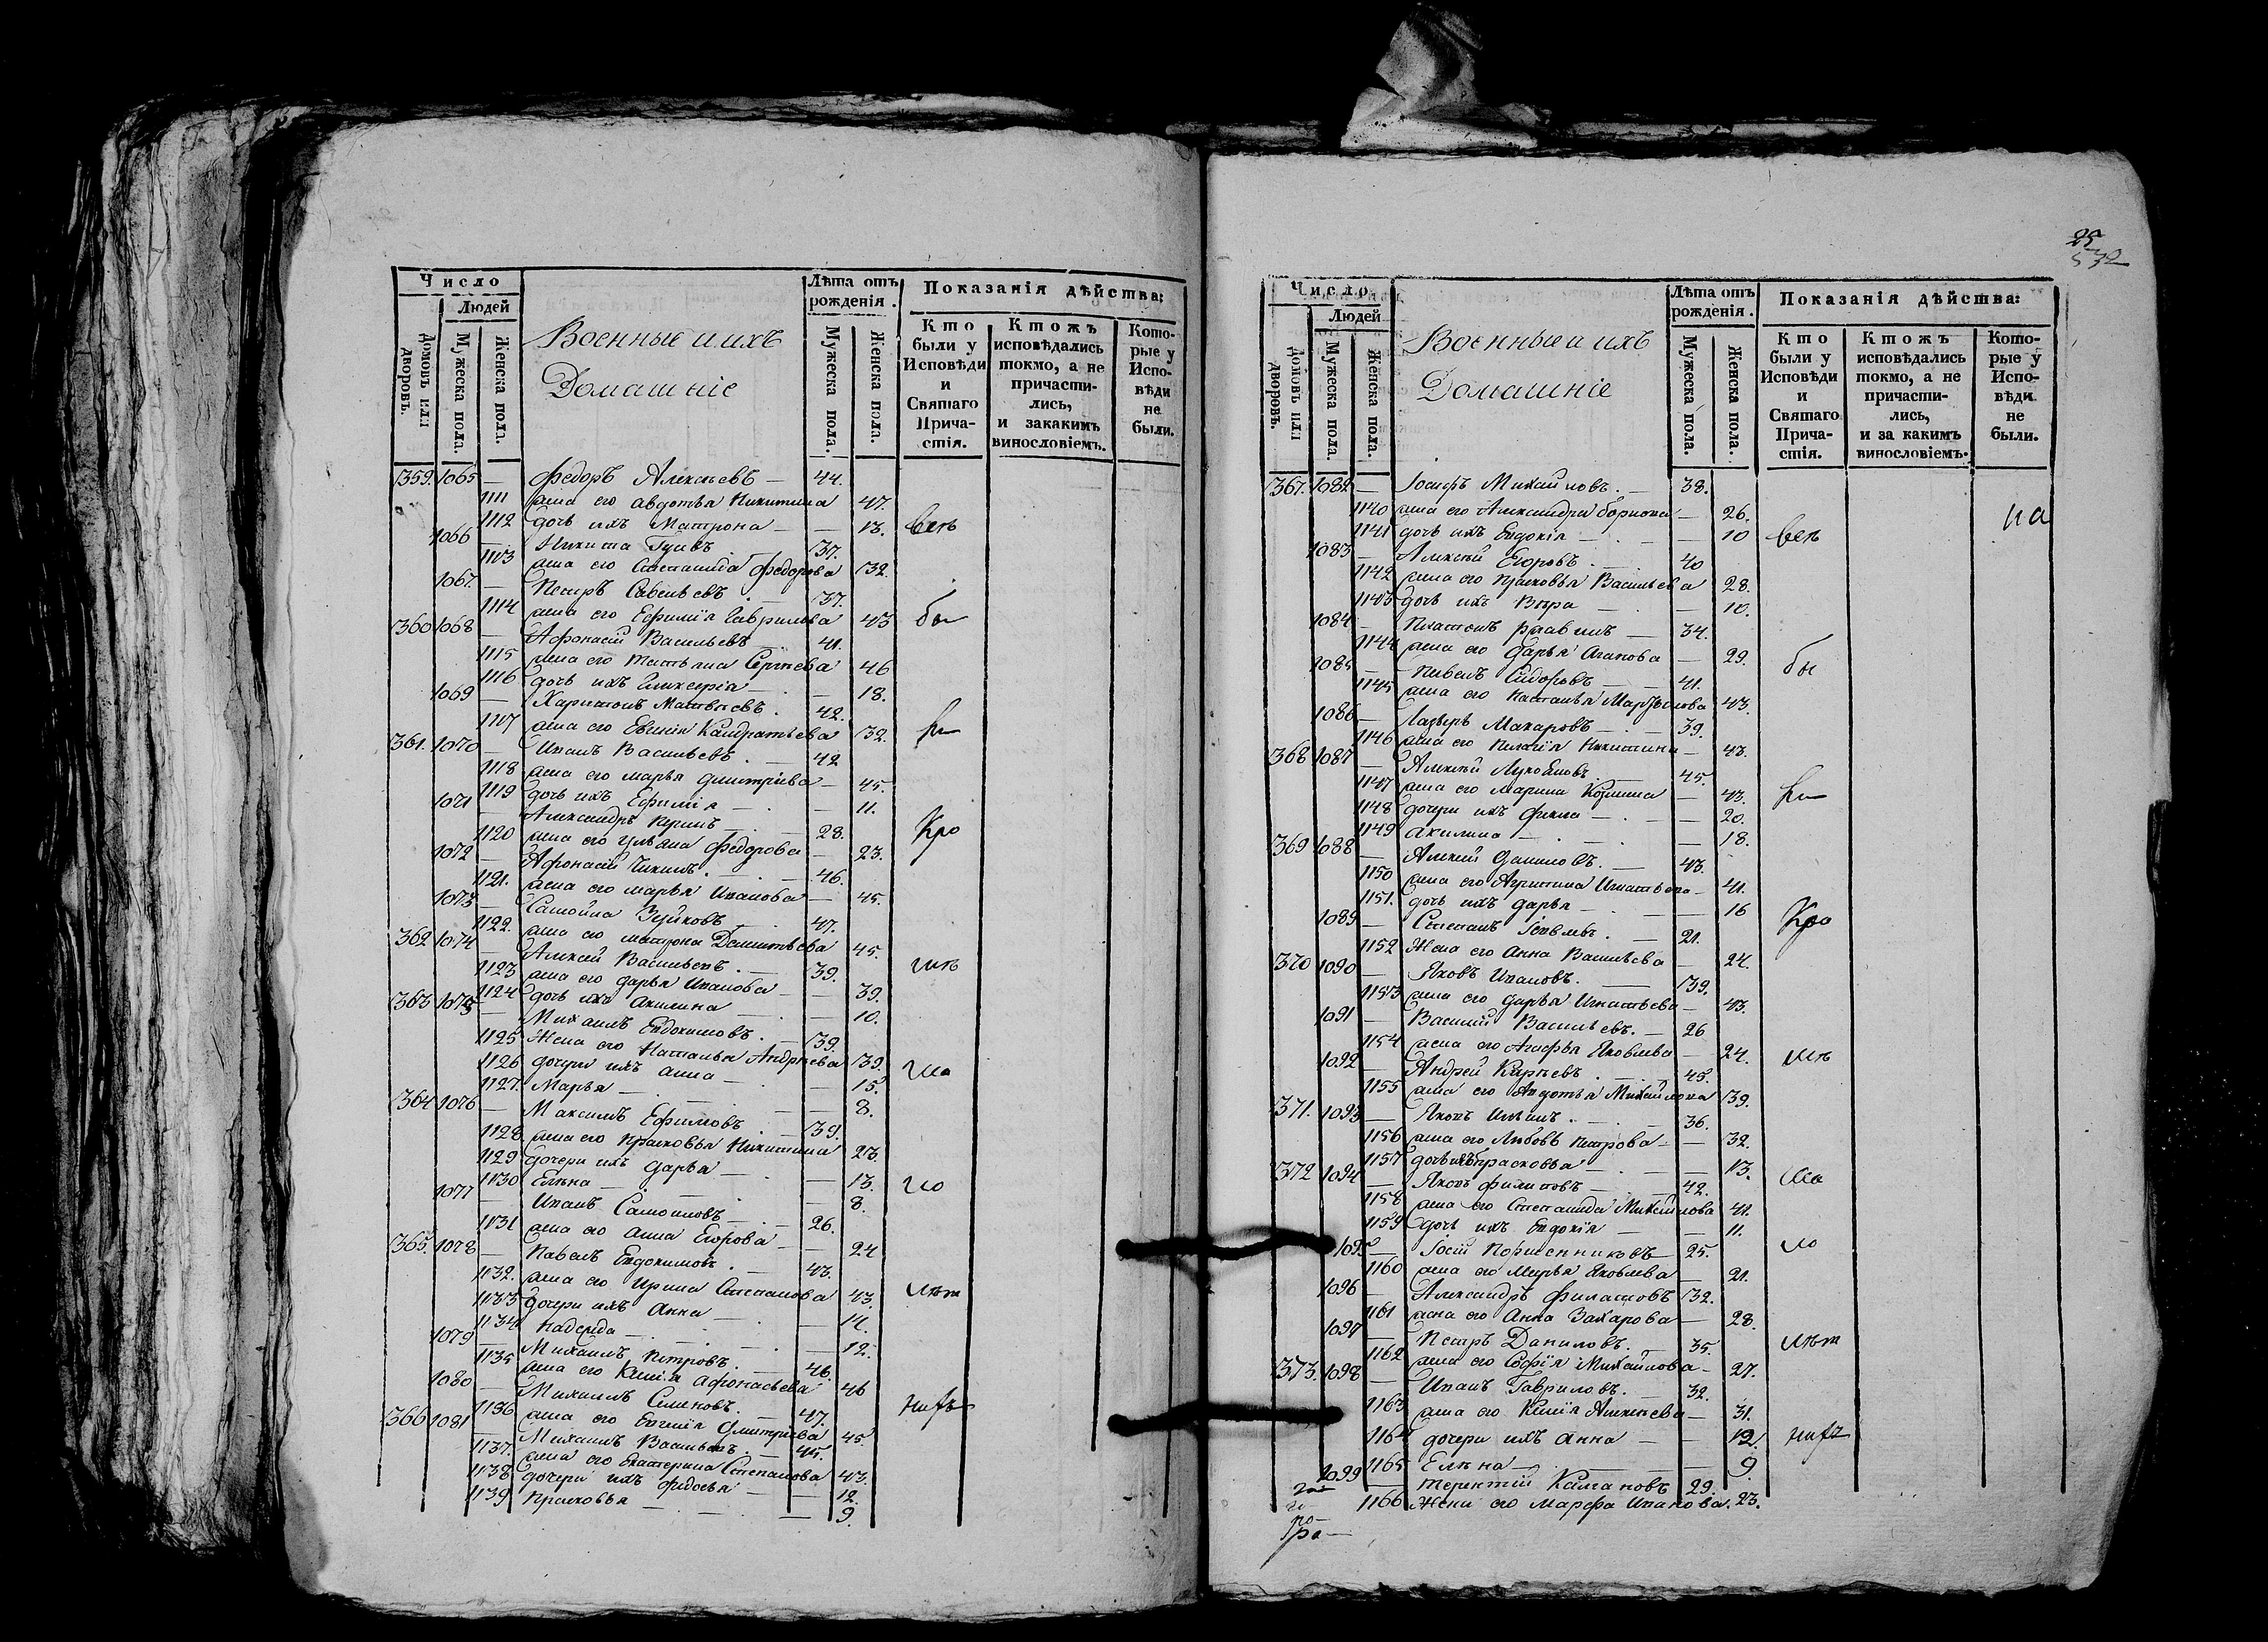 Число
Людей
Домовъ или дворовъ.
Мужеска пола.
Женска пола.
Военные и ихъ
Домашніе
Лѣта отъ рожденія.
Мужеска пола.
Женска пола.
Показанія дѣйства:
Кто были у Исповѣди и Святаго Причастія.
Ктожъ исповѣдались токмо, а не причастились, и закакимъ винословіемъ.
Которые у Исповѣди не были.
359. 1065 — Федоръ Алексѣевъ — 44.
1111 жена его Авдотья Никитина 47.
1112 дочь ихъ Матрона — — 13.
1066 — Никита 37.
1113 жена его Степанида Федорова 32.
1067. — Петръ Савельевъ 37.
1114 жена его Ефимія Гаврилова 43
360 1068 — Афонасій Васильевъ 41.
1115 жена его Татьяна Сергѣева 46
1116 дочь ихъ Гликерія — — 18.
1069 — Харитонъ Матвѣевъ. 42.
1117 жена его Евгенія Кандратьева 32.
361. 1070 — Иванъ Васильевъ. — 42
1118 жена его Марья Дмитріева — 45.
1119 дочь ихъ Ефимія — — 11.
1071 — Александръ — 28.
1120 жена его Ульяна Федорова — 23.
1072 — Афонасій — 46.
1121. жена его Марья Иванова — 45.
1073 — Самойла Зуйковъ 47.
1122. жена его Матрона Дементьева 45.
362 1074 — Алексѣй Васильевъ. — 39.
1123 жена его Дарья Иванова — 39.
1124 дочь ихъ Акилина — — 10.
363 1075 — Михаилъ Евдокимовъ. — 39.
1125 Жена его Наталья Андреева 39.
1126 дочери ихъ Анна — 15.
1127. Марья — — 8.
364 1076 — Максимъ Ефимовъ — 39.
1128. жена его Прасковья Никитина 23.
1129 дочери ихъ Дарья — — 13.
1130 Елѣна — — 8.
1077 — Иванъ Самойловъ — 26.
1131 жена его Анна Егорова — 24
365. 1078 — Павелъ Евдокимовъ. — 43.
1132. жена его Ирина Степанова 43.
1133 дочери ихъ Анна — — 14.
1134 Надежда — — 12.
1079 — Михаилъ Петровъ. — 46.
1135 жена его Ксенія Афонасьева 46
1080 — Михаилъ Семеновъ. — 47.
1136 жена его Евгенія Дмитріева 45.
366 1081 — Михаилъ Васильевъ. 45.
1137. жена его Екатерина Степанова 43.
1138 дочери ихъ Федосья — — 12.
1139 Прасковья — — 9.
25
532
Число
Людей
Домовъ или дворовъ.
Мужеска пола.
Женска пола.
Военные и ихъ
Домашніе
Лѣта отъ рожденія.
Мужеска пола.
Женска пола.
Показанія дѣйства:
Кто были у Исповѣди и Святаго Причастія.
Ктожъ исповѣдались токмо, а не причастились, и за какимъ винословіемъ.
Которые у Исповѣди не были.
367. 1082 — Іосифъ Михайловъ. — 38.
1140 жена его Александра — 26.
1141 дочь ихъ Евдокія — — 10
1083 — Алексѣй Егоровъ. — 40
1142 жена его Прасковья Васильева 28.
1143 дочь ихъ Вѣра — — 10.
1084 — Платонъ — 34.
1144 жена его Дарья Агапова — 29.
1085 — Павелъ Сидоровъ — 41.
1145 жена его 43.
1086 — Лазарь Макаровъ — 39.
1146 жена его Пелагія Никитина — 43.
368 1087 — Алексѣй — 45.
1147 жена его Марина Козмина — 43.
1148 дочери ихъ Фекла — — 20.
1149 Акилина — — 18.
369 1088 — Алексѣй Даниловъ. — 43.
1150 жена его Агрипина Игнатьева — 41.
1151. дочь ихъ Дарья — — 16
1089 — Степанъ — 21.
1152 Жена его Анна Васильева — 24.
370 1090 — Яковъ Ивановъ. — 39.
1153 жена его Дарья Игнатьева — 43.
1091 — Василій Васильевъ. — 26
1154 жена его Агафья Яковлева — 24.
1092 — Андрей — 45.
1155 жена его Авдотья Михайлова 39.
371. 1093 — Яковъ — 36.
1156 жена его Любовь Петрова — 32.
1157 дочь ихъ Прасковья — — 13.
372 1094 — Яковъ Филиповъ — 42.
1158 жена его Степанида Михайлова 41.
1159 дочь ихъ Евдокія — — 11.
1095 — 25.
1160 жена его Марья Яковлева — 21.
1096 — Александръ Филатовъ 32.
1161 жена его Анна Захарова — 28.
1097 — Петръ Даниловъ. — 35.
1162 жена его Софія Михайлова — 27.
373. 1098 — Иванъ Гавриловъ. — 32.
1163 жена его Ксенія Алексѣева — 31.
1164 дочери ихъ Анна — — 12.
1165 Елѣна — — 9.
1099 — Терентій 29.
1166 Жена его Марфа Иванова. 23.